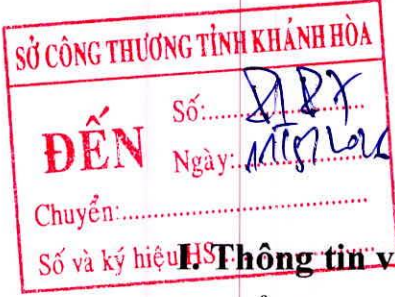 SỞ CÔNG THƯƠNG TỈNH KHÁNH HÒA
ĐẾN
Số:
Ngày:
Chuyển:
Số và ký hiệu HS:
I. Thông tin v